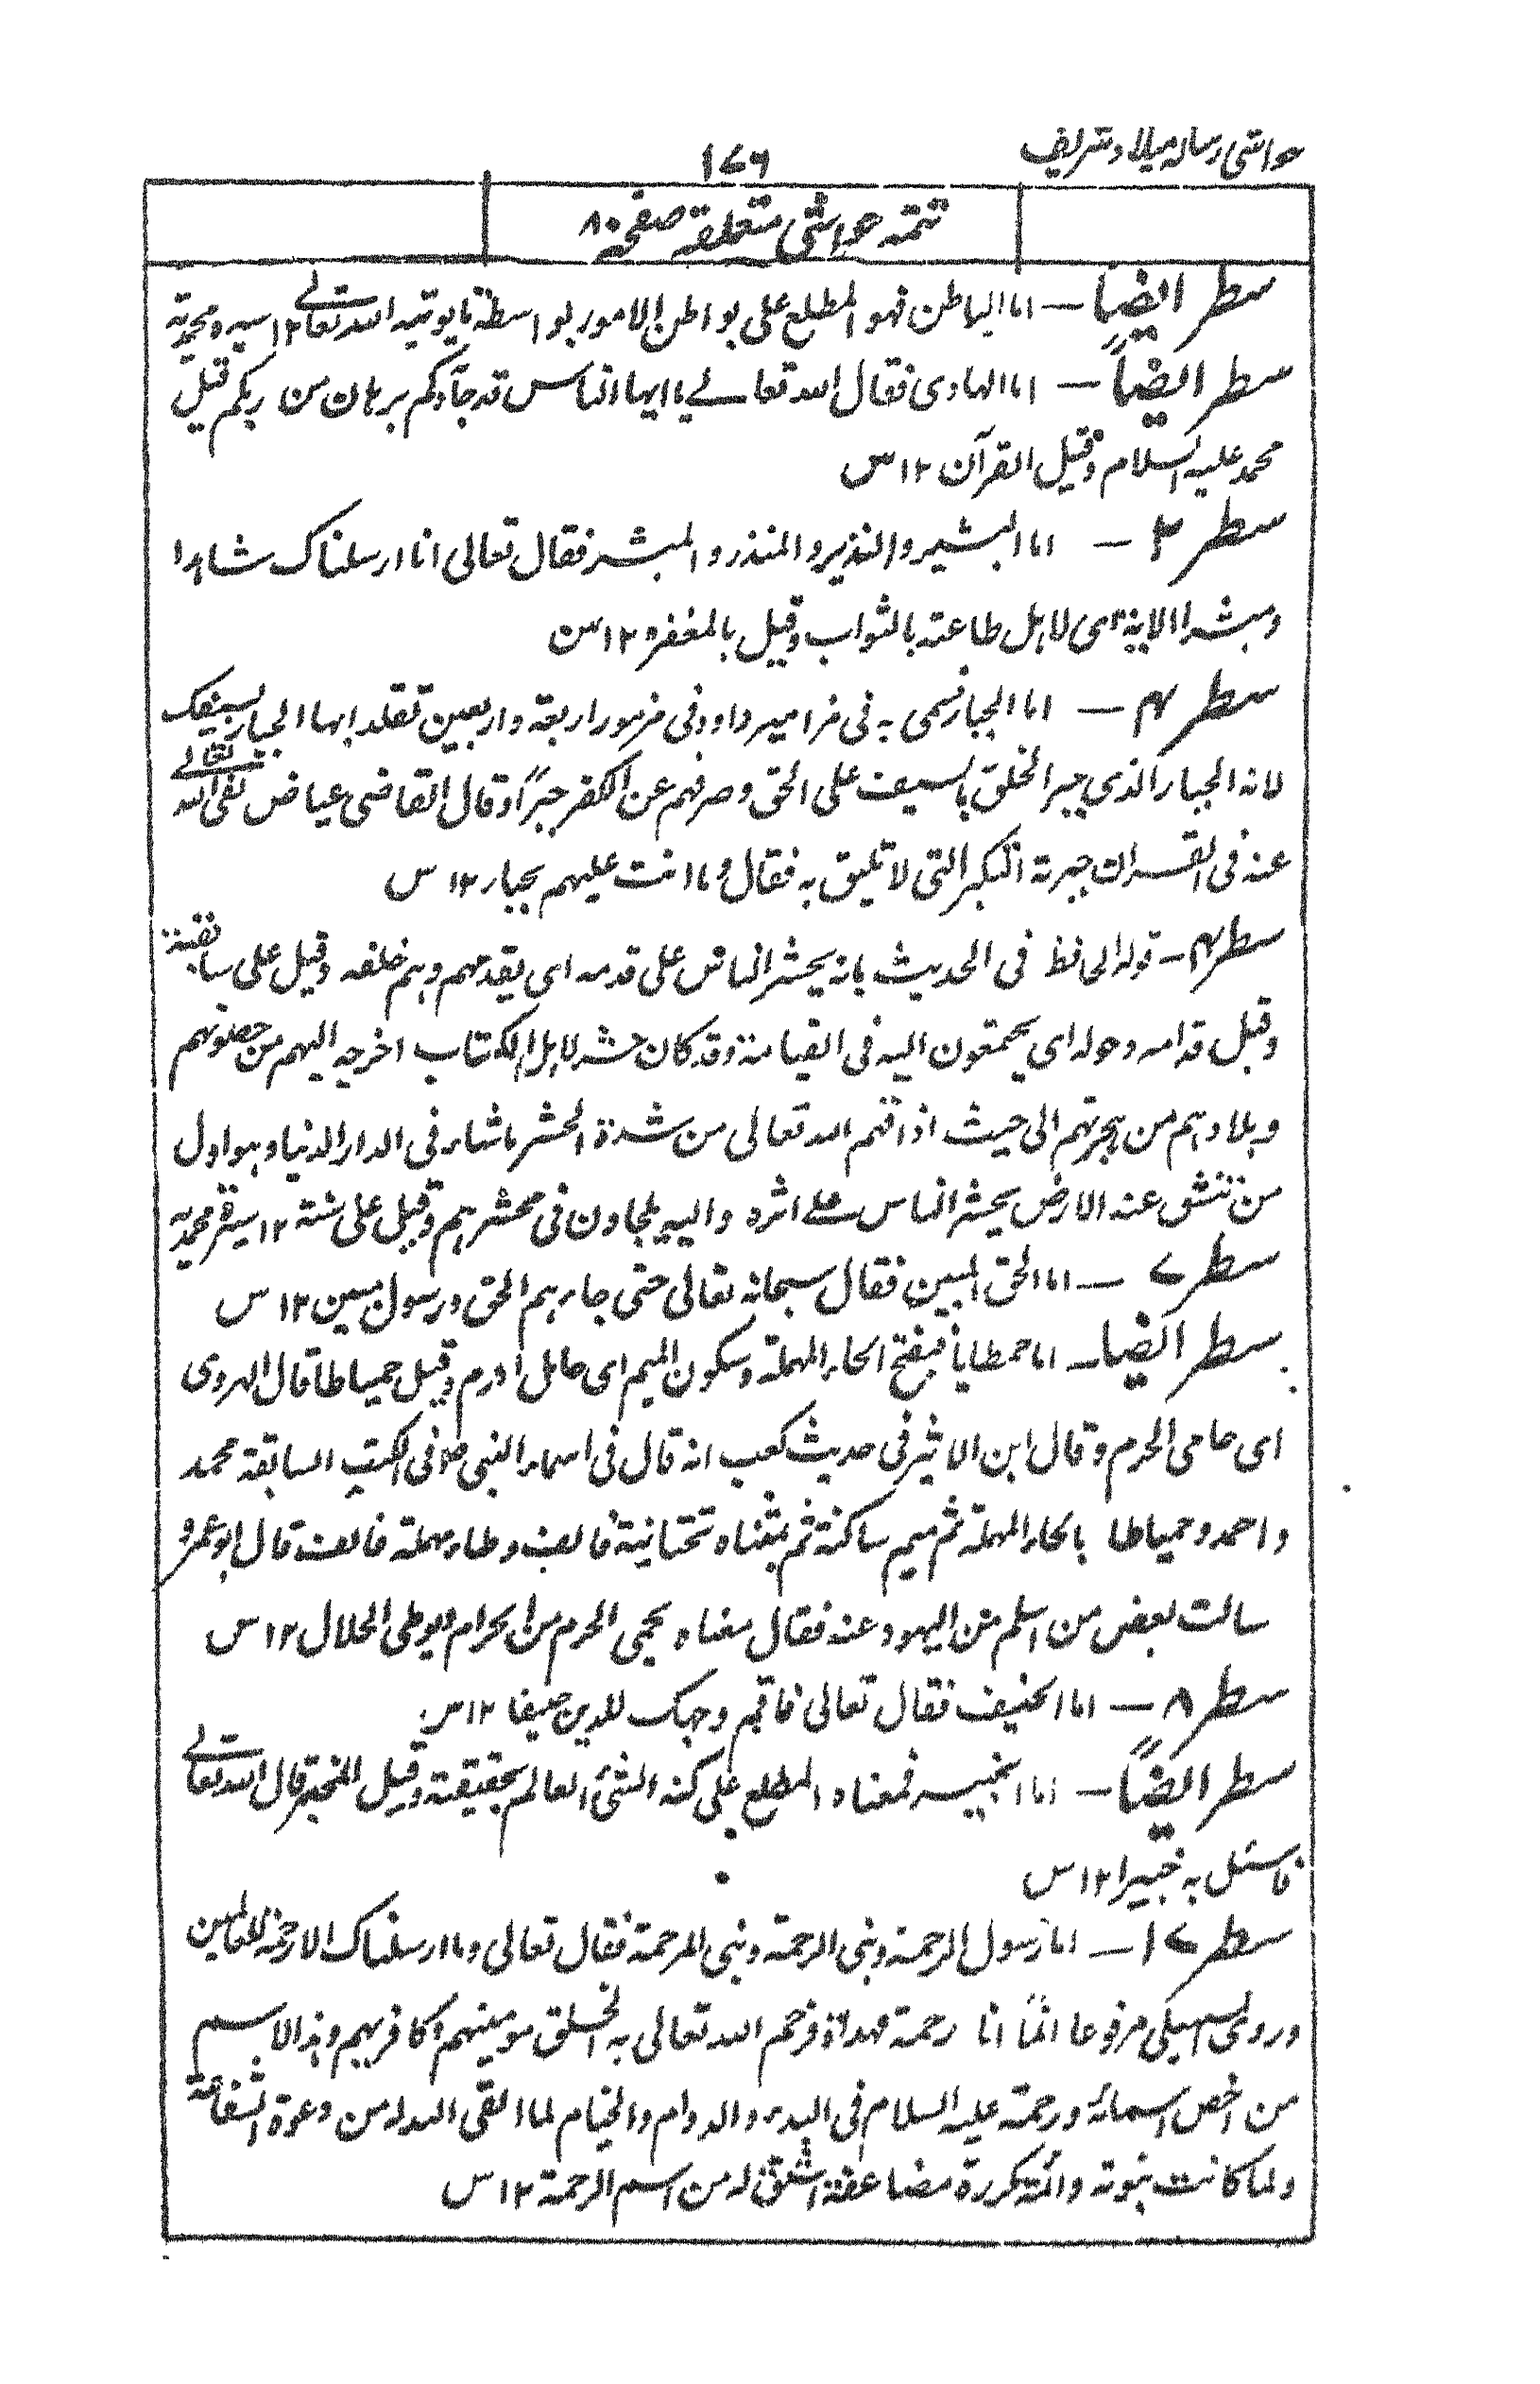 حواشی رسالہ میلاد شریف
۱۷۶
تتمہ حواشی متعلقہ صفحہ ۸۰
سطر ایضاً — اما الباطن فهو المطلع علی بواطن الامور بواسطة ما یوتیه الله تعالے ۱۲ سیرہ محمدیة
سطر ایضاً — اما الهادی فقال الله تعالے یا ایها الناس قد جآءکم برهان من ربکم قیل
محمد علیه السلام وقیل القرآن ۱۲ س
سطر ۳ — اما البشیر والنذیر والمنذر والمبشر فقال تعالی انا ارسلناک شاہدا
ومبشرا الایة ای لاہل طاعته بالثواب وقیل بالمغفرہ ۱۲ س
سطر ۴ — اما الجبار فسمی به فی مزامیر داود فی مزمور اربعة واربعین تقلد ایها الجبار بسیفک
لانه الجبار الذی جبر الخلق بالسیف علی الحق وصرفهم عن الکفر جبراً وقال القاضی عیاض نفی الله تعالے
عنه فی القران جبریة التکبر التی لا تلیق به فقال وما انت علیهم بجبار ۱۲ س
سطر ۴ — قوله الحافظ فی الحدیث بانه یحشر الناس علی قدمه ای یقدمهم وہم خلفه وقیل علی سابقتة
وقیل قدامه وحوله ای یجمتعون الیه فی القیامة وقد کان حشر لاہل الکتاب اخرجه الیهم من حصونهم
وبلادہم من ہجرتهم الی حیث اذاقهم الله تعالی من شدة الحشر ماشاء فی الدار الدنیا وہو اول
من تنشق عنه الارض یحشر الناس علے اثرہ والیه یلجاون فی محشرہم وقیل علی سنته ۱۲ سیرة محمدیه
سطر ۷ — اما الحق المبین فقال سبحانه تعالی حتی جاءہم الحق ورسول مبین ۱۲ س
سطر ایضاً — اما حمطایا فبفتح الحاء المهملة وسکون المیم ای حامل ادرم وقیل حمیاطا قال الهروی
ای حامی الحرم وقال ابن الاثیر فی حدیث کعب انه قال فی اسماء النبی صلعم فی الکتب السابقة محمد
واحمد وحمیاطا بالحاء المهملة ثم میم ساکنة ثم بمثناہ تحتانیة فالف وطاء مهملة فالف قال ابو عمرو
سالت بعض من اسلم من الیهود عنه فقال معناه یحمی الحرم من الحرام ویوطی الحلال ۱۲ س
سطر ۸ — اما الحنیف فقال تعالی فاقم وجہک للدین حنیفا ۱۲ س
سطر ایضاً — اما الخبیر فمعناه المطلع علی کنه الشئ العالم بحقیقته وقیل المخبر قال الله تعالے
فاسئل به خبیرا ۱۲ س
سطر ۱۷ — اما رسول الرحمة ونبی الرحمة ونبی المرحمة فقال تعالی وما ارسلناک الا رحمة للعالمین
وروی السہیلی مرفوعا انما انا رحمة مهداة فرحم الله تعالی به الخلق مومنهم وکافرہم وہذا الاسم
من اخص اسمائه ورحمته علیه السلام فی البدء والدوام والختام لما القی الله له من دعوة الشفاعة
ولما کانت نبوته دائمة مکررة مضاعفة اشتق له من اسم الرحمة ۱۲ س